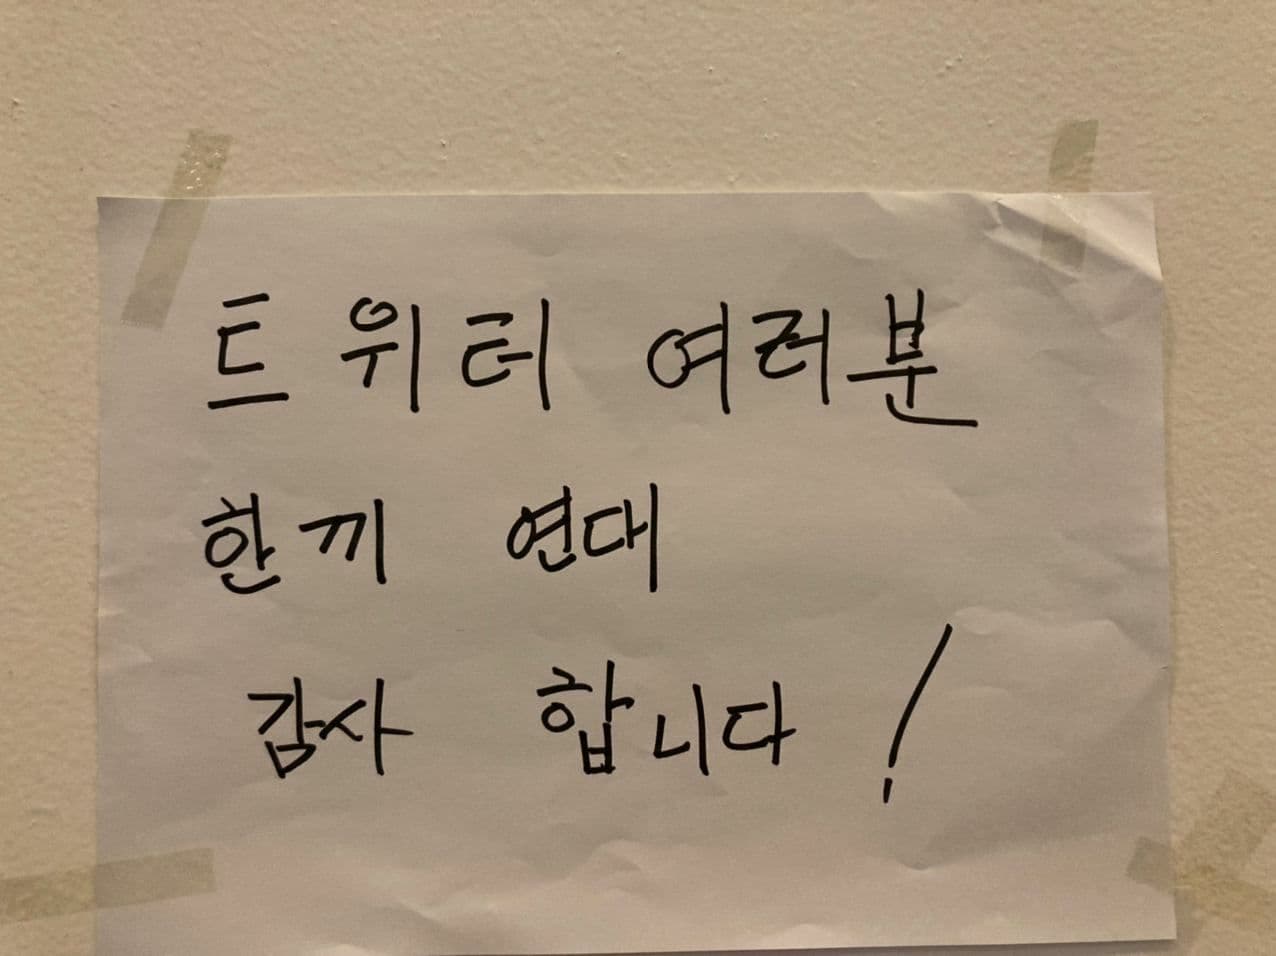 트위터 여러분
한끼 연대
감사 합니다!